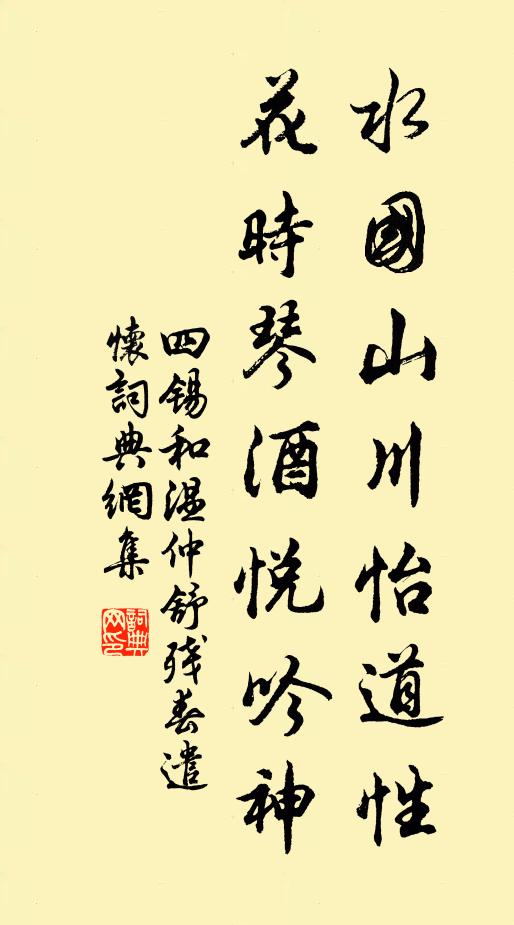 水國山川怡道性
花時琴酒悅吟神
四錫和溫仲舒殘春遣
懷詞典網集
詞典網印